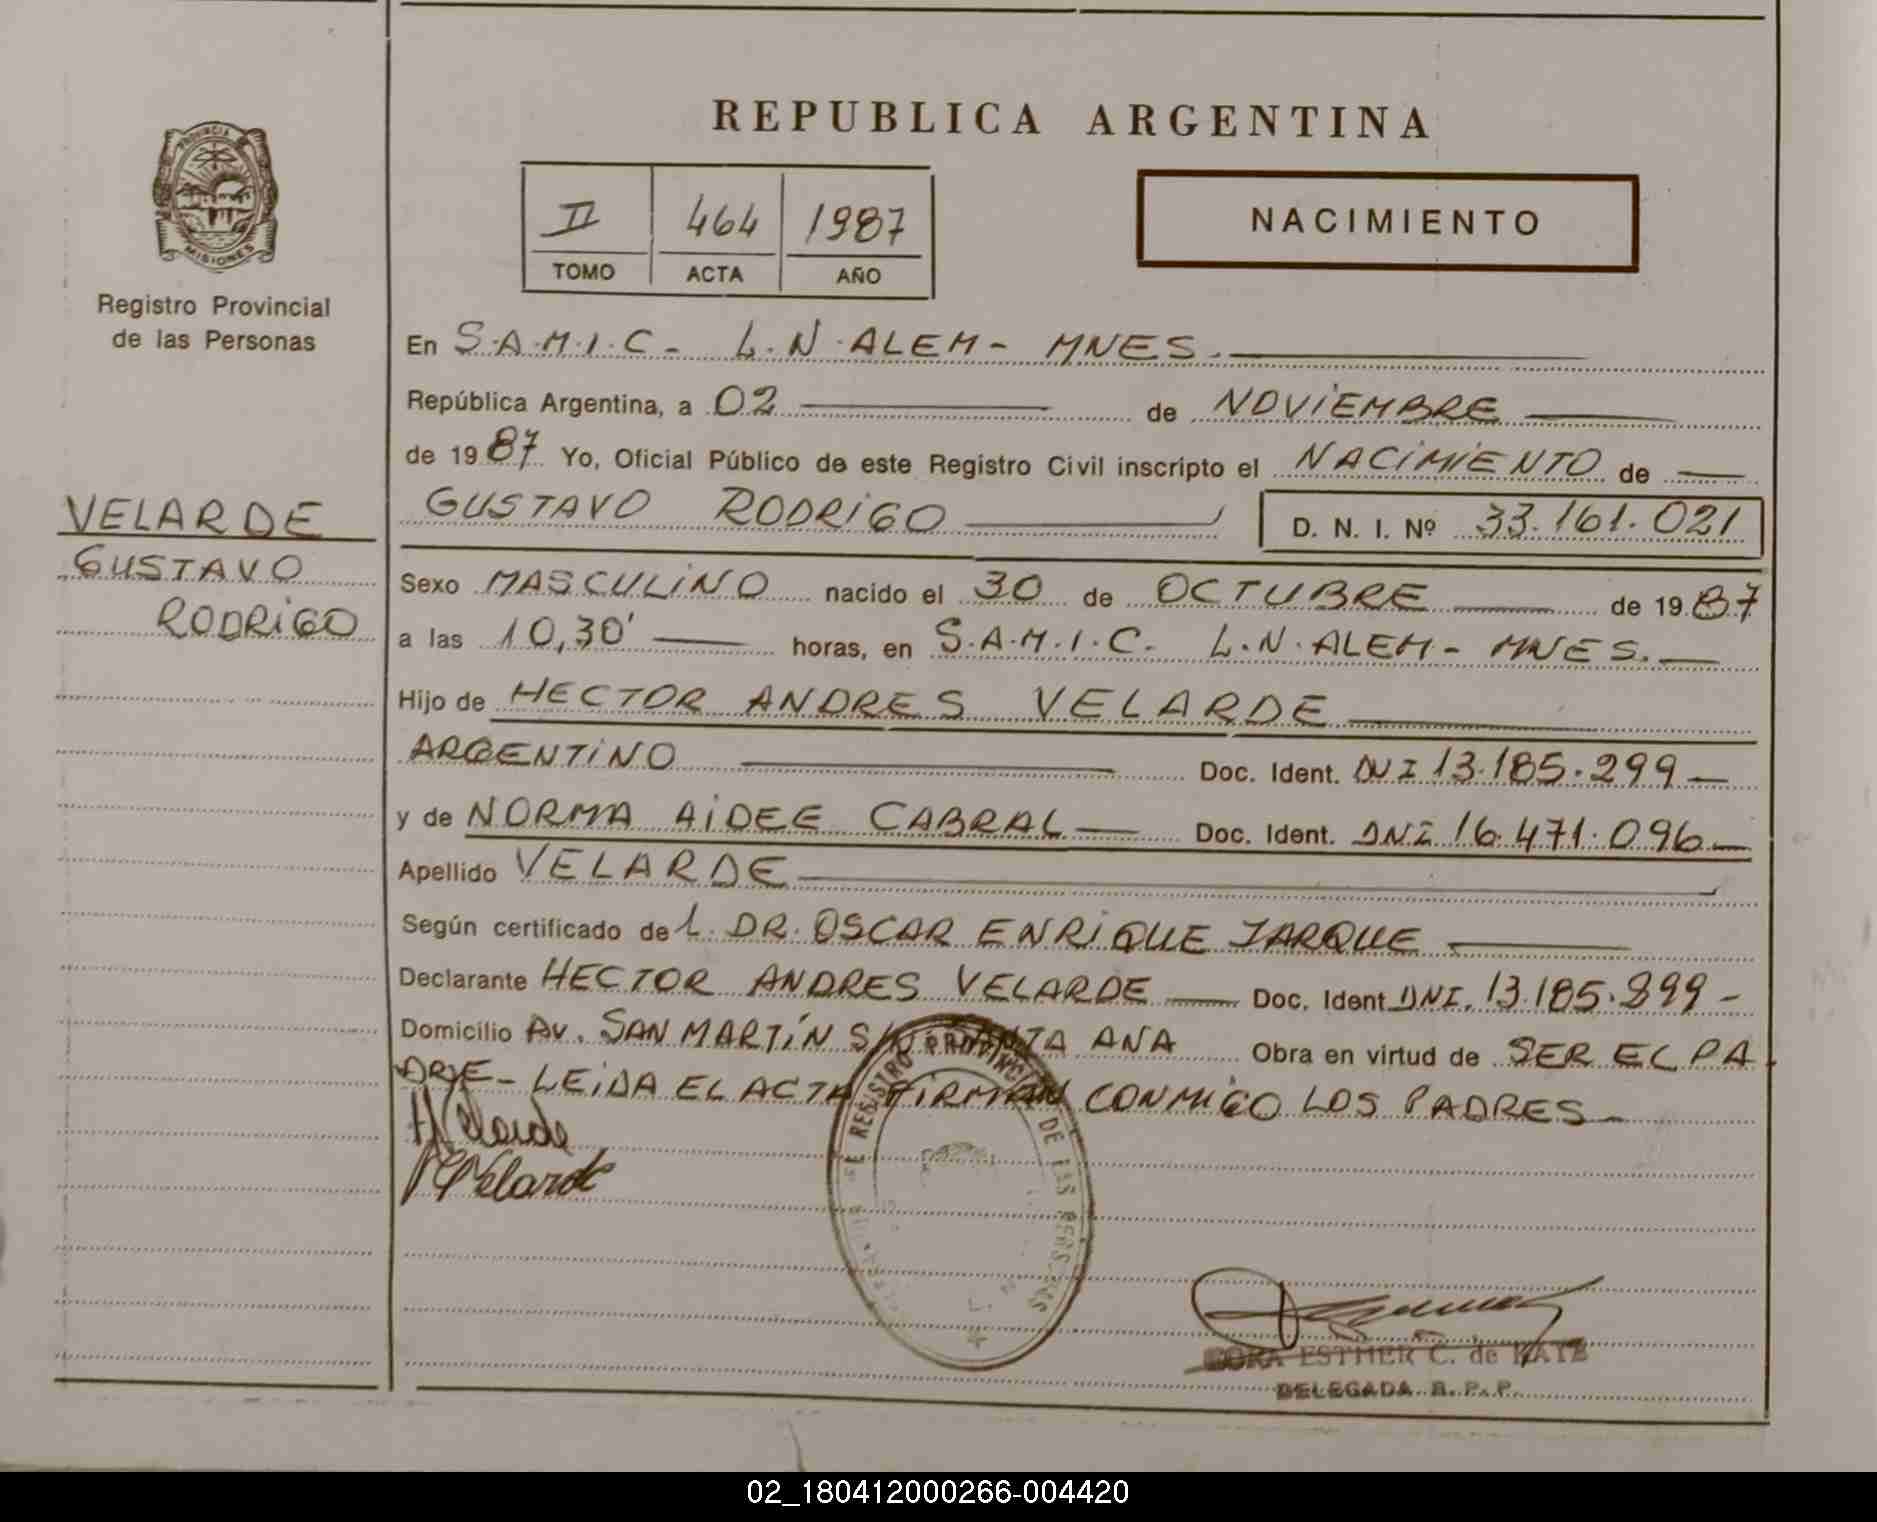 REPUBLICA ARGENTINA
PROVINCIA
MISIONES
Registro Provincial
de las Personas
II 464 1987
TOMO ACTA AÑO
NACIMIENTO
En S.A.M.I.C- L.N.ALEM- MNES.
República Argentina, a 02 de NOVIEMBRE
de 1987 Yo, Oficial Público de este Registro Civil inscripto el NACIMIENTO de
GUSTAVO RODRIGO D. N. I. Nº 33.161.021
VELARDE
GUSTAVO
RODRIGO
Sexo MASCULINO nacido el 30 de OCTUBRE de 1987
a las 10,30' horas, en S.A.M.I.C. L.N.ALEM- MNES.
Hijo de HECTOR ANDRES VELARDE
ARGENTINO Doc. Ident. DNI 13.185.299
y de NORMA AIDEE CABRAL Doc. Ident. DNI 16.471.096
Apellido VELARDE
Según certificado de L. DR. OSCAR ENRIQUE JARQUE
Declarante HECTOR ANDRES VELARDE Doc. Ident DNI. 13.185.299-
Domicilio AV. SAN MARTIN S/N SANTA ANA Obra en virtud de SER EL PA
DRE- LEIDA EL ACTA FIRMAN CONMIGO LOS PADRES-
H Velarde
Velarde
REGISTRO PROVINCIAL DE LAS PERSONAS
ESTHER C. de KATZ
DELEGADA R. P. P.
02_180412000266-004420